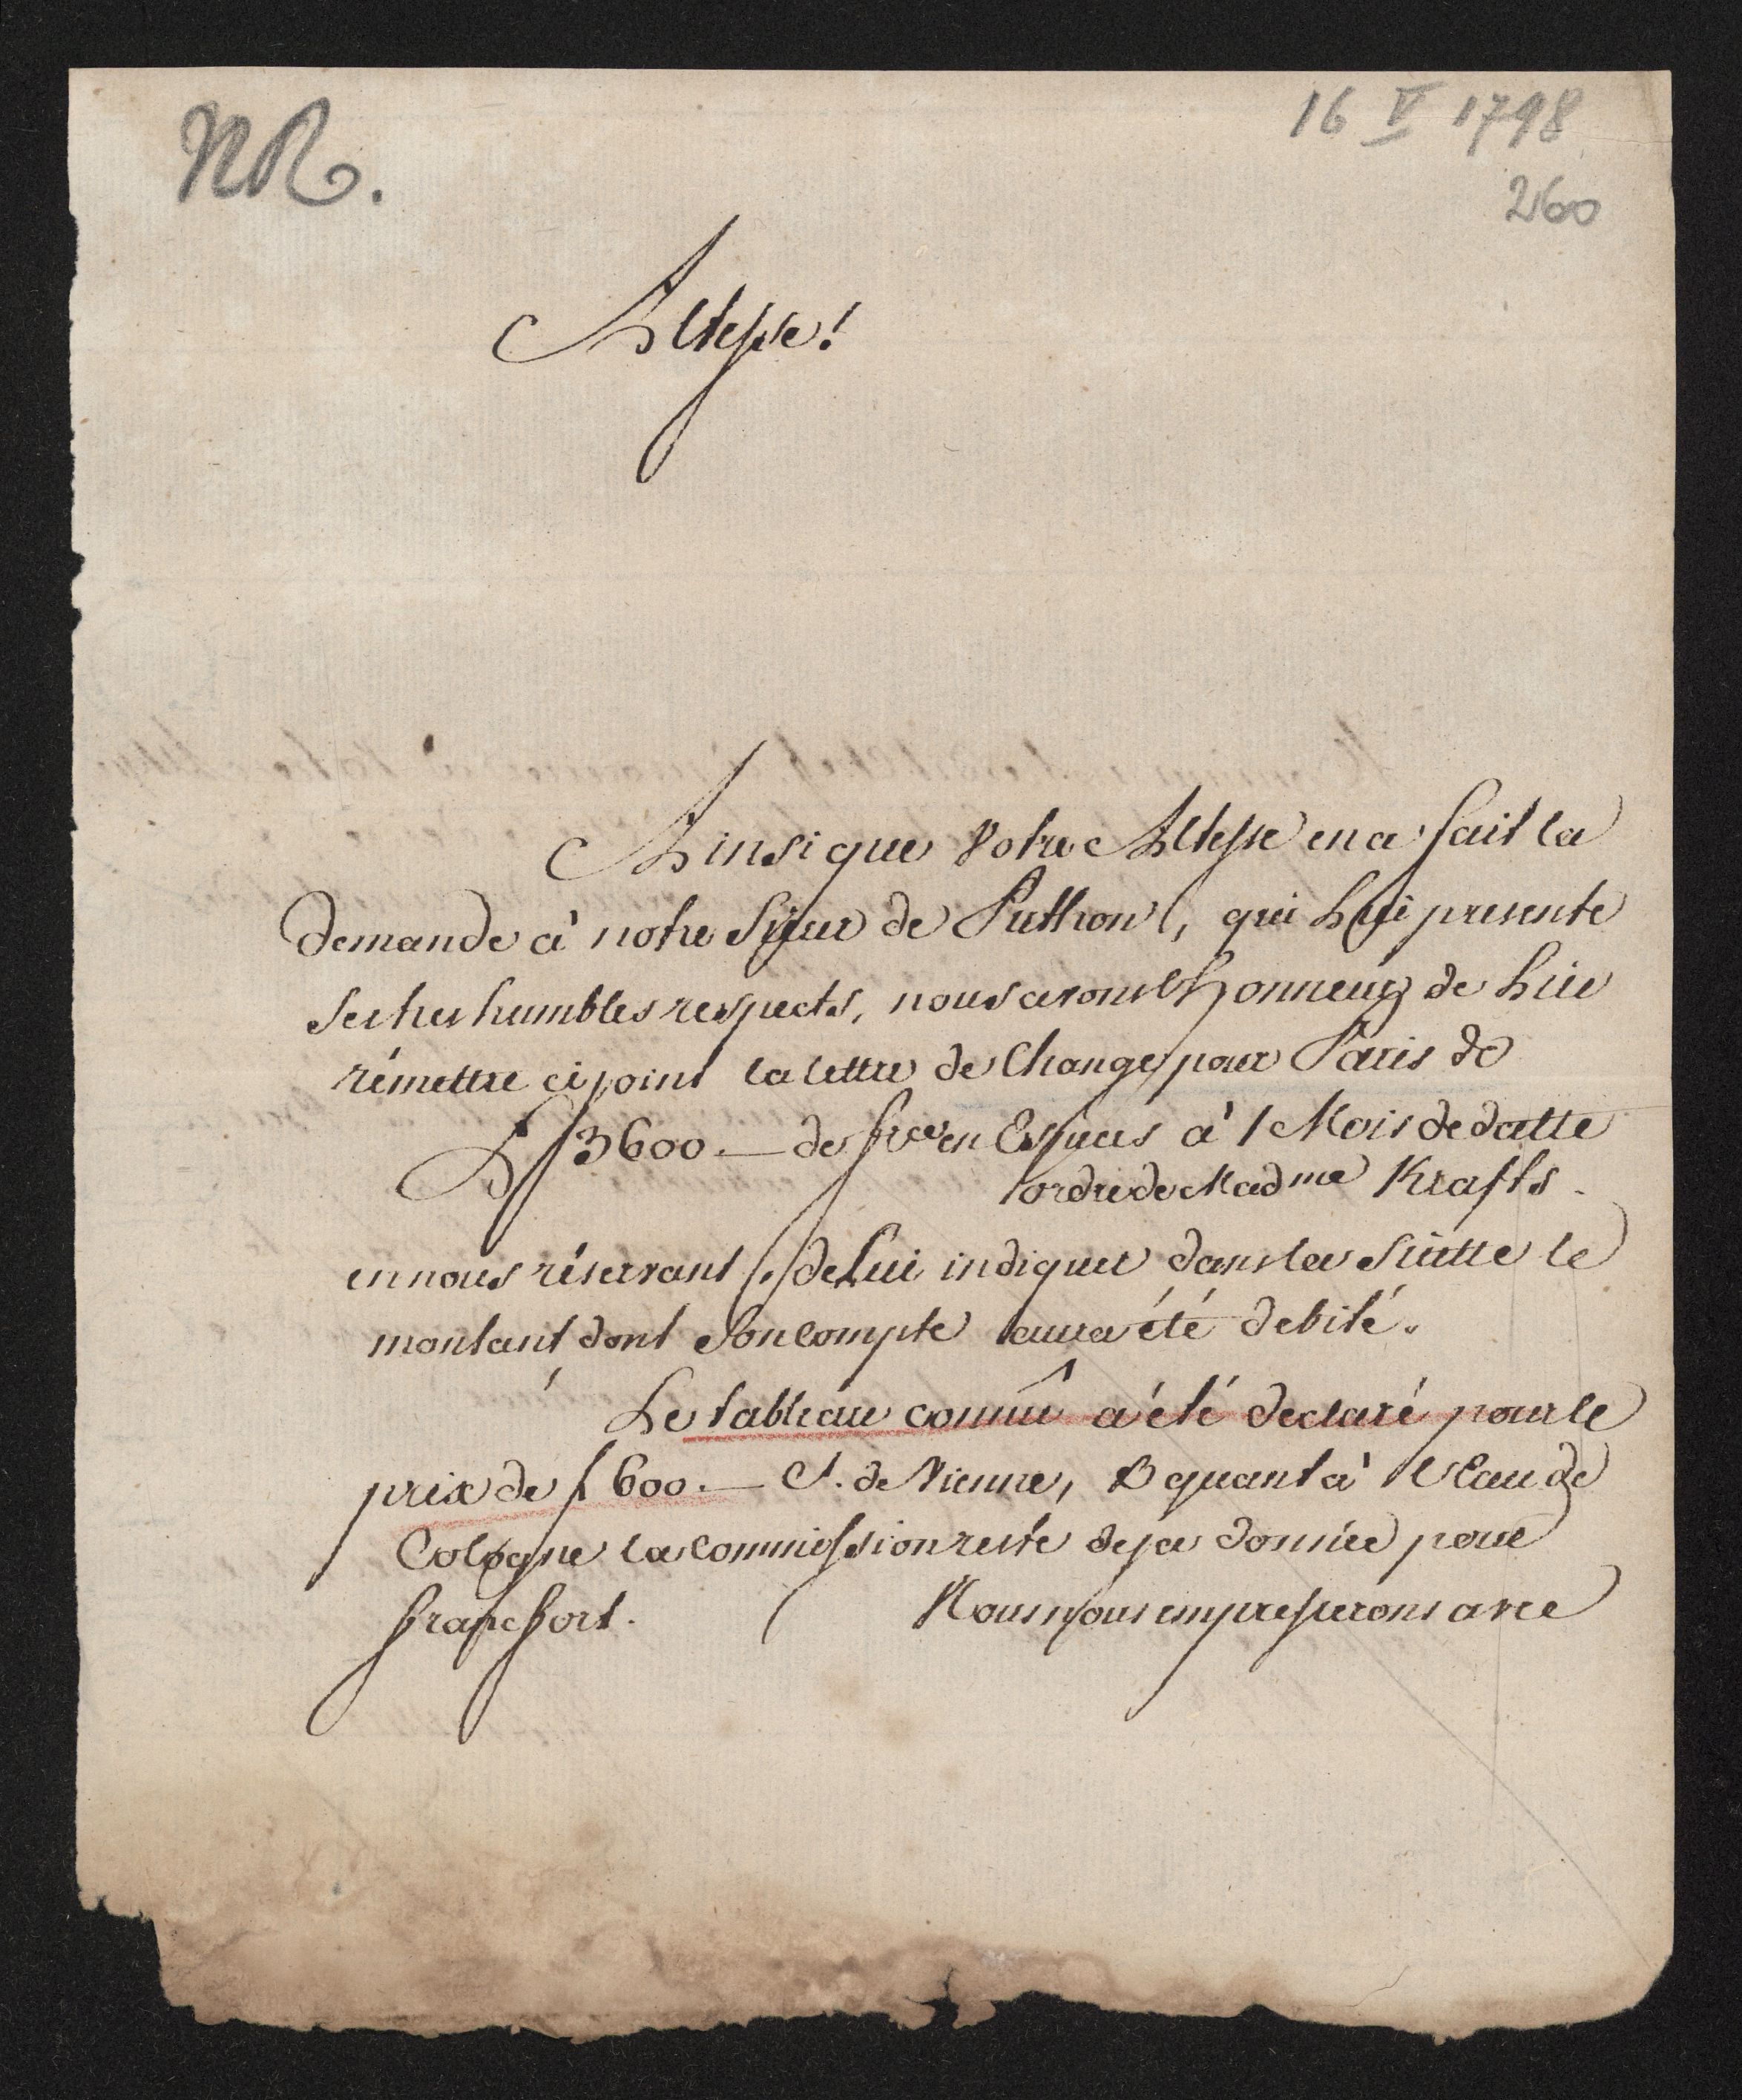 NR.
16 V 1798
260
Altesse!
Ainsi que Votre Altesse en a fait la
demande à notre Sieur de Puthon, qui Lui presente
ses tres humbles respects, nous avons l'honneur de Lui
rémettre ci joint la lettre de Change pour Paris de
3600.— de en Especes à 1 Mois de datte
ordre de Madme Kraffts.
en nous réservant de Lui indiquer dans la Suitte le
montant dont Son Compte aura été debité.
Le tableau connû a été declaré pour le
prix de f 600.— Ct. de Vienne, & quant à l'Eau de
Cologne la Commission reste deja donnée pour
francfort. Nous nous empresserons avec